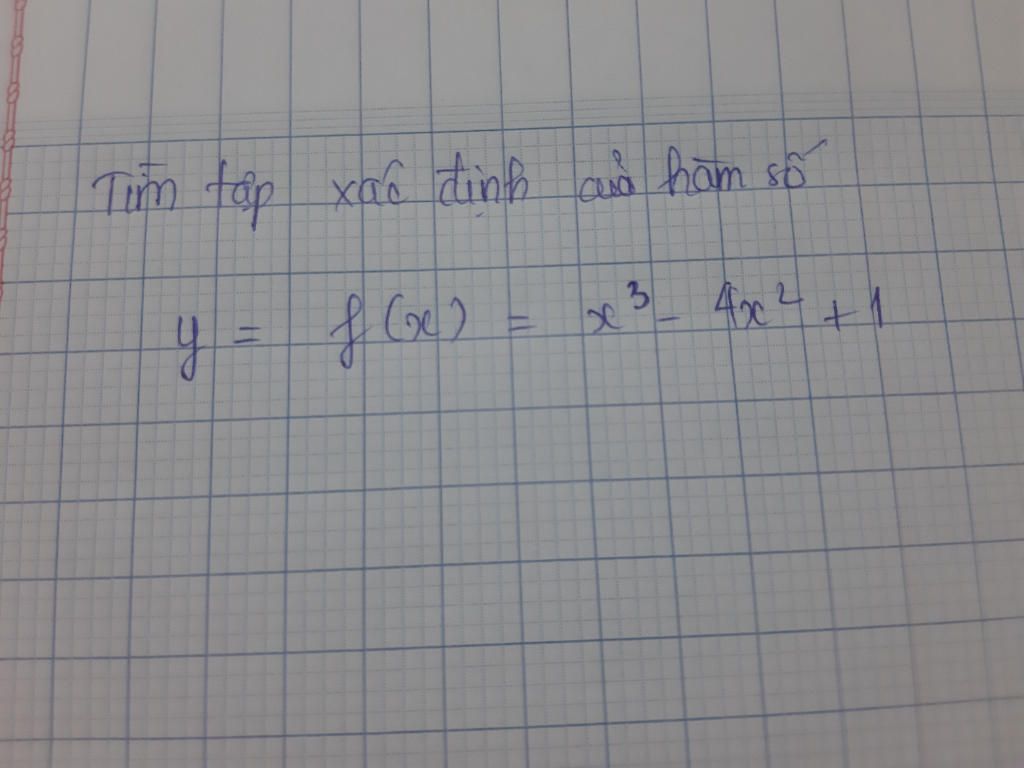 Tìm tập xác định của hàm số
y = f(x) = x³ - 4x² + 1